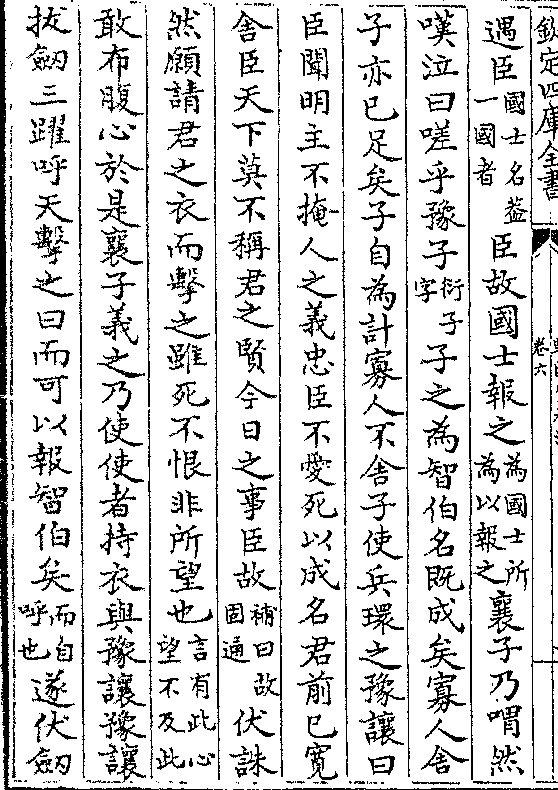 欽定四庫全書
卷六
遇臣國士名蓋一國者臣故國士報之為國士所為以報之襄子乃喟然
嘆泣曰嗟乎豫子衍子字子之為智伯名既成矣寡人舍
子亦已足矣子自為計寡人不舍子使兵環之豫讓曰
臣聞明主不掩人之義忠臣不愛死以成名君前已寛
舍臣天下莫不稱君之賢今日之事臣故補曰故固通伏誅
然願請君之衣而擊之雖死不恨非所望也言有此心望不及此
敢布腹心於是襄子義之乃使使者持衣與豫讓豫讓
拔劒三躍呼天擊之曰而可以報智伯矣而自呼也遂伏劒